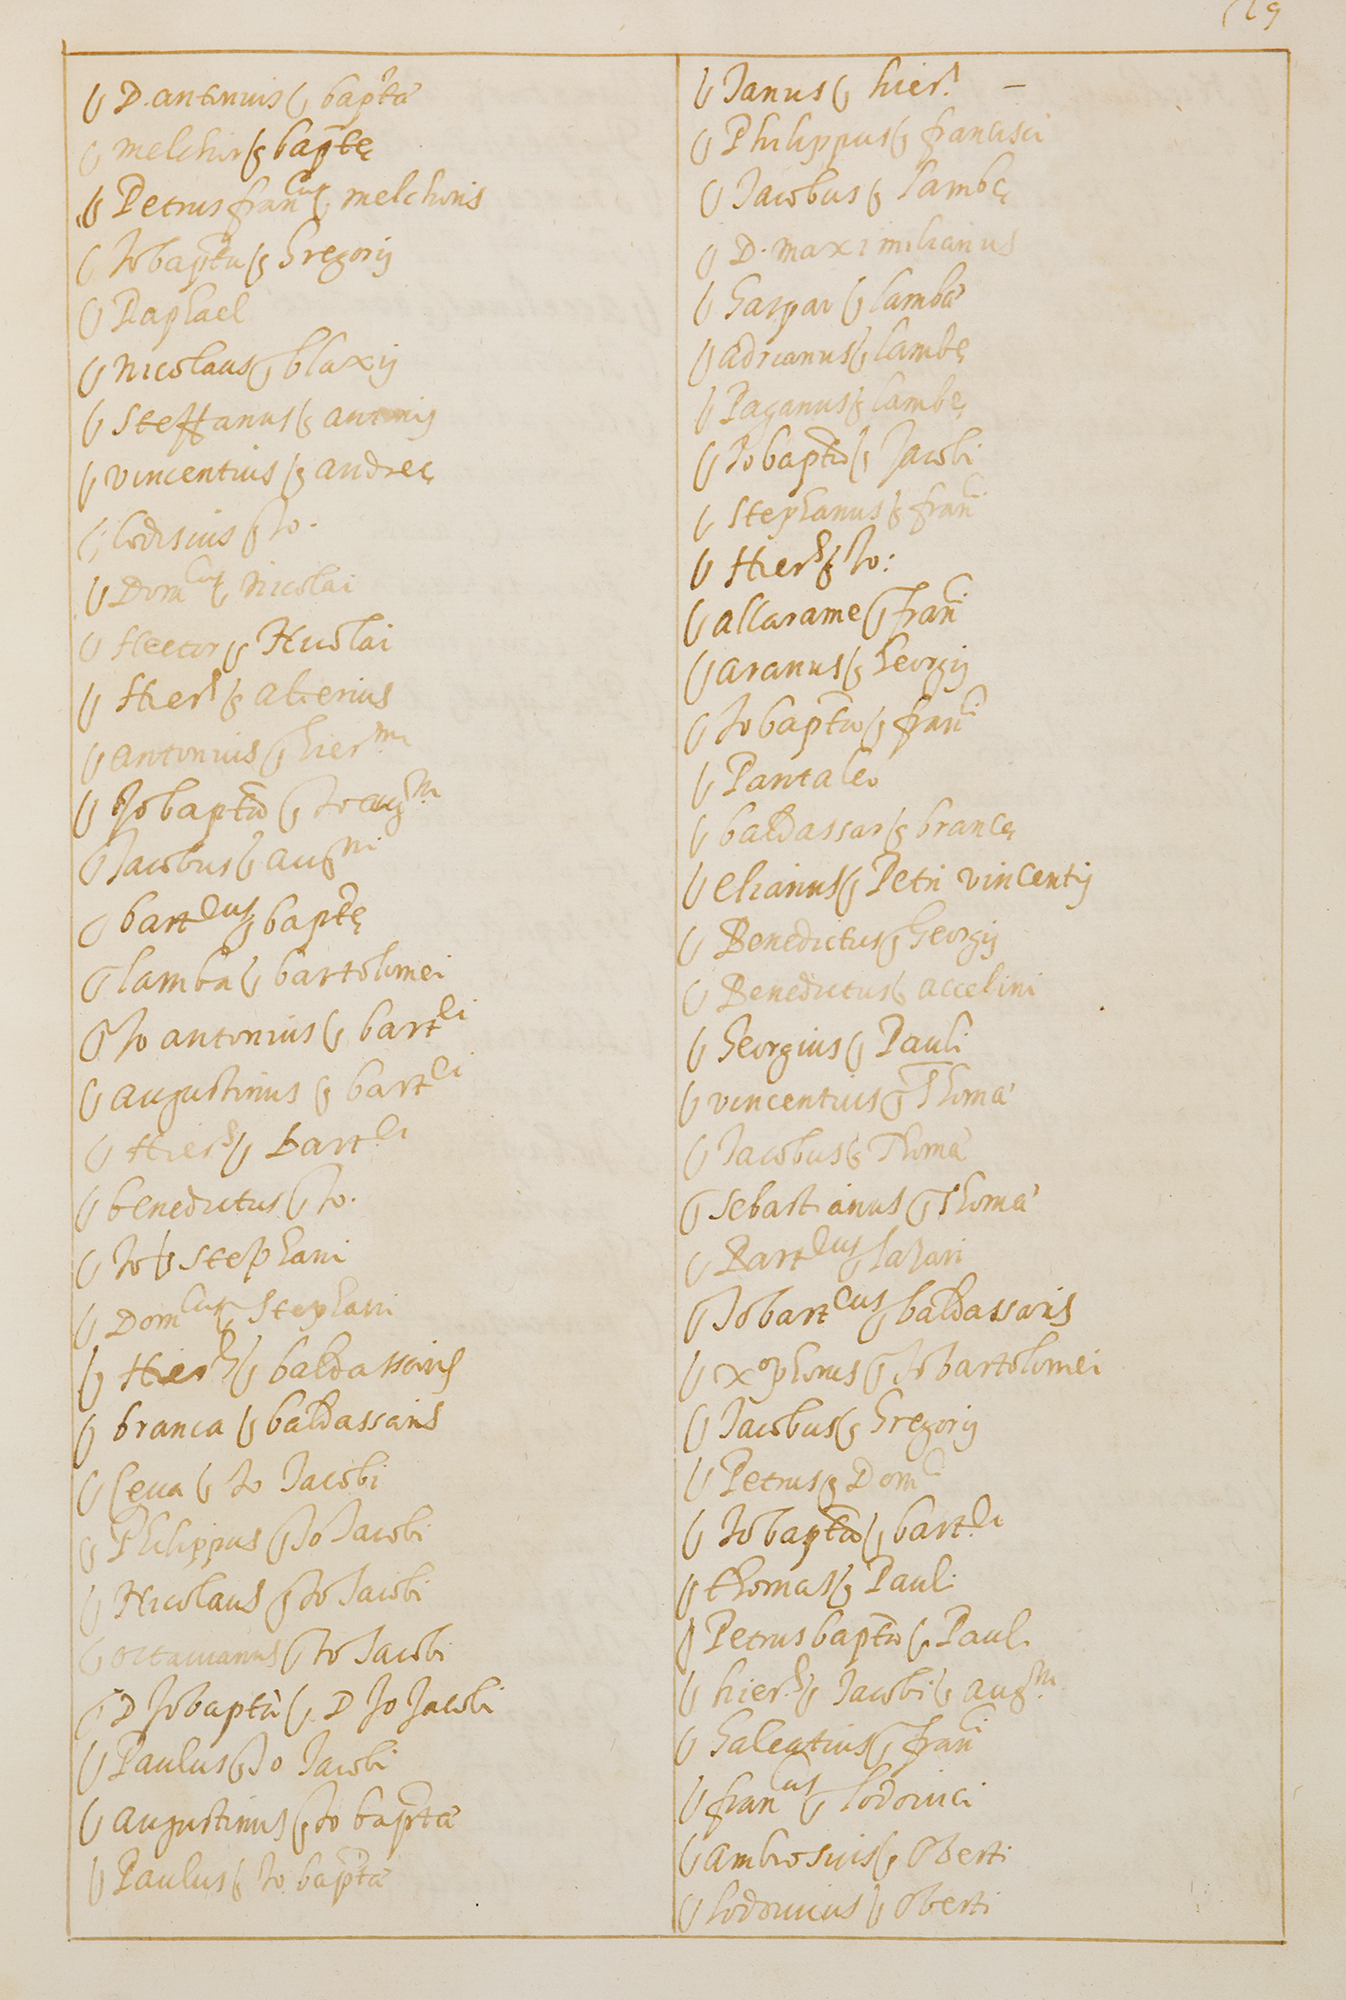 129
D. antonius q bapta
melchior q baptę
Petrus fran.cus q melchioris
Jo bapta q Gregorij
Raphael
Nicolaus q blaxij
Steffanus q antonij
vincentius q andreę
lodisius q Jo.
Dom.cus q Nicolai
Hector q Nicolai
Hier.s q alterius
antonius q hier.mi
Jo bapta q Jo aug.ni
Jacobus q aug.ni
bart.eus q baptę
lamba q bartolomei
Jo antonius q bart.ei
augustinus q bart.ei
Hier.s q bart.ei
benedictus q Jo.
Jo q Stephani
Dom.cus q Stephani
Hier.s q baldassaris
branca q baldassaris
Ceua q Jo Jacobi
Philippus q Jo Jacobi
Nicolaus q Jo Jacobi
octauianus q Jo Jacobi
D Jo bapta q D Jo Jacobi
Paulus q Jo Jacobi
augustinus q Jo bapta
Paulus q Jo bapta
Janus q hier.i –
Philippus q francisci
Jacobus q lambę
D. maximilianus
Gaspar q lamba
adrianus q lambę
Paganus q lambę
Jo bapta q Jacobi
Stephanus q fran.ci
Hier.s q Jo:
allarame q fran.ci
aranus q Georgij
Jo bapta q fran.ci
Pantaleo
baldassar q brancę
elianus q Petri vincentij
Benedictus q Georgij
Benedictus q accelini
Georgius q Pauli
vincentius q Thoma
Jacobus q Thoma
Sebastianus q Thoma
Bart.eus q lazari
Jo bart.eus q baldassaris
Xophorus q Jo bartolomei
Jacobus q Gregorij
Petrus q Dom.ci
Jo bapta q bart.ei
thomas q Pauli
Petrus bapta q Pauli
hier.s q Jacobi q aug.ni
Galeatius q fran.ci
fran.cus q lodouici
ambrosius q oberti
lodouicus q oberti